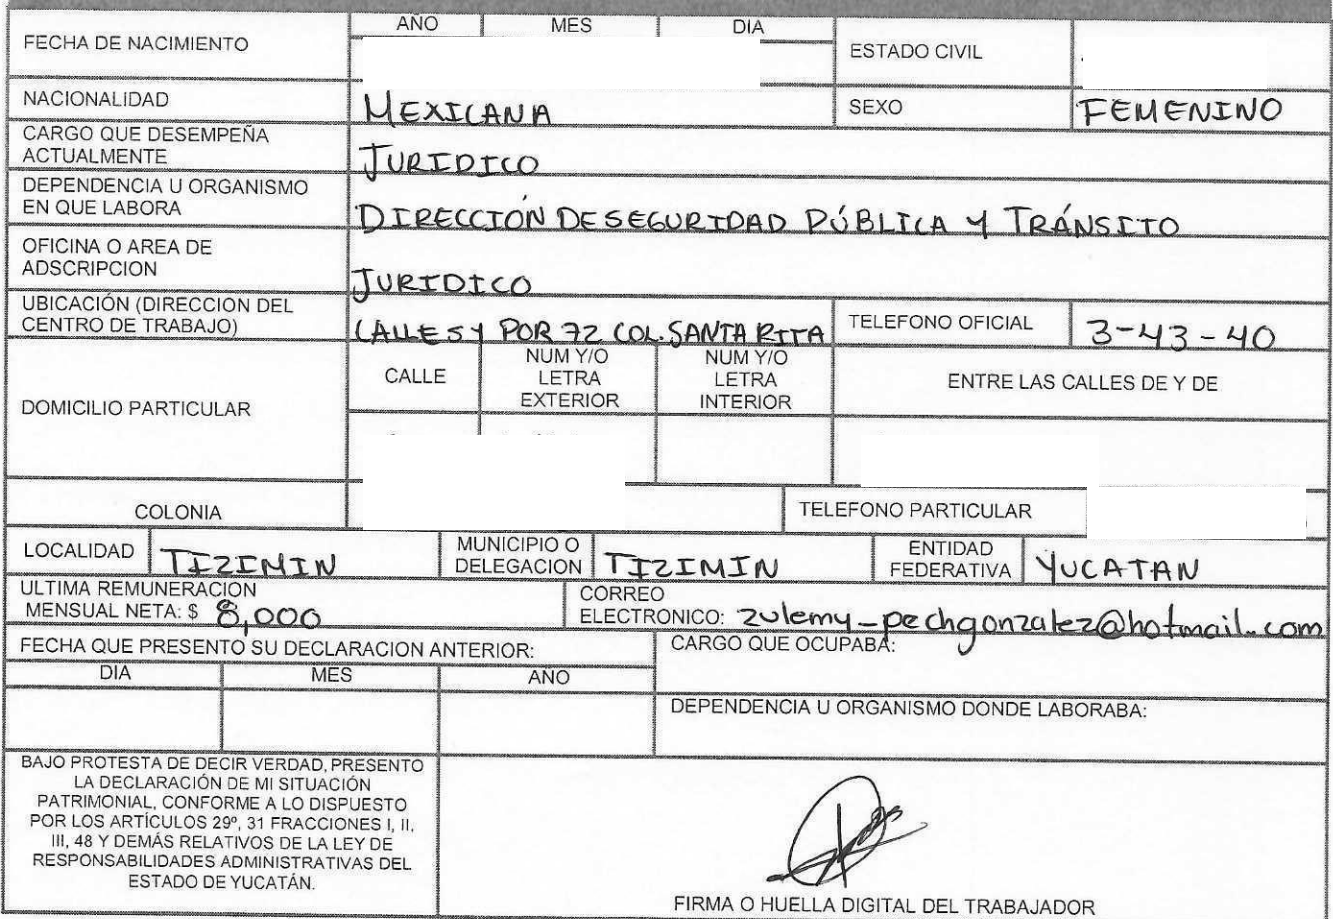 AÑO MES DIA
FECHA DE NACIMIENTO ESTADO CIVIL
NACIONALIDAD MEXICANA SEXO FEMENINO
CARGO QUE DESEMPEÑA
ACTUALMENTE JURIDICO
DEPENDENCIA U ORGANISMO
EN QUE LABORA DIRECCIÓN DE SEGURIDAD PÚBLICA Y TRÁNSITO
OFICINA O AREA DE
ADSCRIPCION JURIDICO
UBICACIÓN (DIRECCION DEL
CENTRO DE TRABAJO) CALLE 54 POR 72 COL. SANTA RITA TELEFONO OFICIAL 3-43-40
DOMICILIO PARTICULAR
CALLE
NUM Y/O
LETRA
EXTERIOR
NUM Y/O
LETRA
INTERIOR
ENTRE LAS CALLES DE Y DE
COLONIA TELEFONO PARTICULAR
LOCALIDAD TIZIMIN
MUNICIPIO O
DELEGACION TIZIMIN
ENTIDAD
FEDERATIVA YUCATAN
ULTIMA REMUNERACION
MENSUAL NETA: $ 8,000
CORREO
ELECTRONICO: zulemy_pechgonzalez@hotmail.com
FECHA QUE PRESENTO SU DECLARACION ANTERIOR: CARGO QUE OCUPABA:
DIA MES AÑO
DEPENDENCIA U ORGANISMO DONDE LABORABA:
BAJO PROTESTA DE DECIR VERDAD, PRESENTO
LA DECLARACIÓN DE MI SITUACIÓN
PATRIMONIAL, CONFORME A LO DISPUESTO
POR LOS ARTÍCULOS 29º, 31 FRACCIONES I, II,
III, 48 Y DEMÁS RELATIVOS DE LA LEY DE
RESPONSABILIDADES ADMINISTRATIVAS DEL
ESTADO DE YUCATÁN.
FIRMA O HUELLA DIGITAL DEL TRABAJADOR